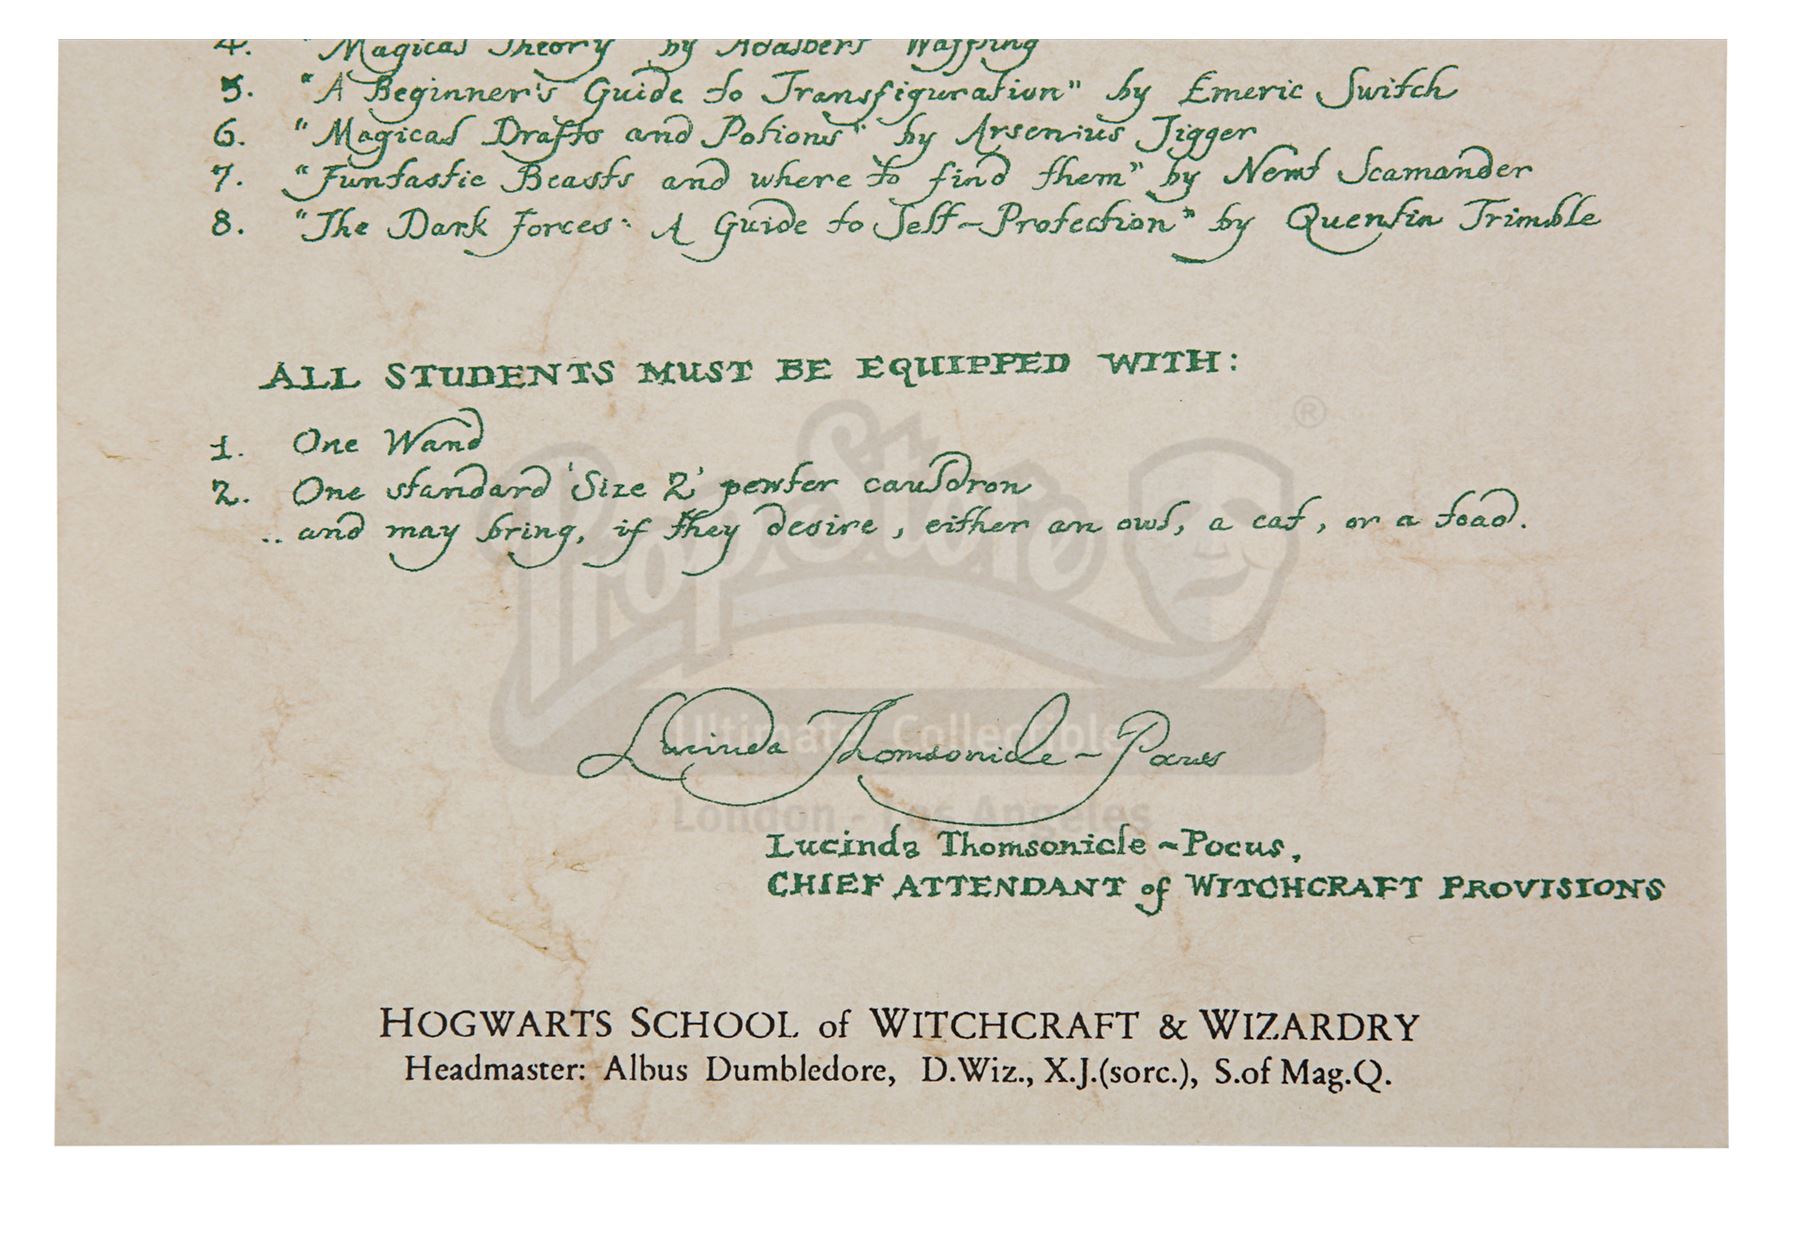 4. "Magical Theory" by Adalbert Waffling
5. "A Beginner's Guide to Transfiguration" by Emeric Switch
6. "Magical Drafts and Potions" by Arsenius Jigger
7. "Funtastic Beasts and where to find them" by Newt Scamander
8. "The Dark Forces: A Guide to Self-Protection" by Quentin Trimble
ALL STUDENTS MUST BE EQUIPPED WITH:
1. One Wand
2. One standard 'Size 2' pewter cauldron
.. and may bring, if they desire, either an owl, a cat, or a toad.
PropStore ®
Ultimate Collectibles
London - Los Angeles
Lucinda Thomsonicle-Pocus
Lucinda Thomsonicle~Pocus,
CHIEF ATTENDANT of WITCHCRAFT PROVISIONS
HOGWARTS SCHOOL of WITCHCRAFT & WIZARDRY
Headmaster: Albus Dumbledore, D.Wiz., X.J.(sorc.), S.of Mag.Q.